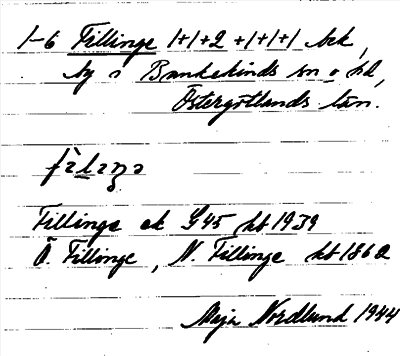 1-6 Tillinge 1+1+2+1+1+1 bek,
by i Bankekinds sn o hd,
Östergötlands län.
Tillinge ek G45 kb 1939
Ö. Tillinge, N. Tillinge kb 1860
Maja Nordlund 1944